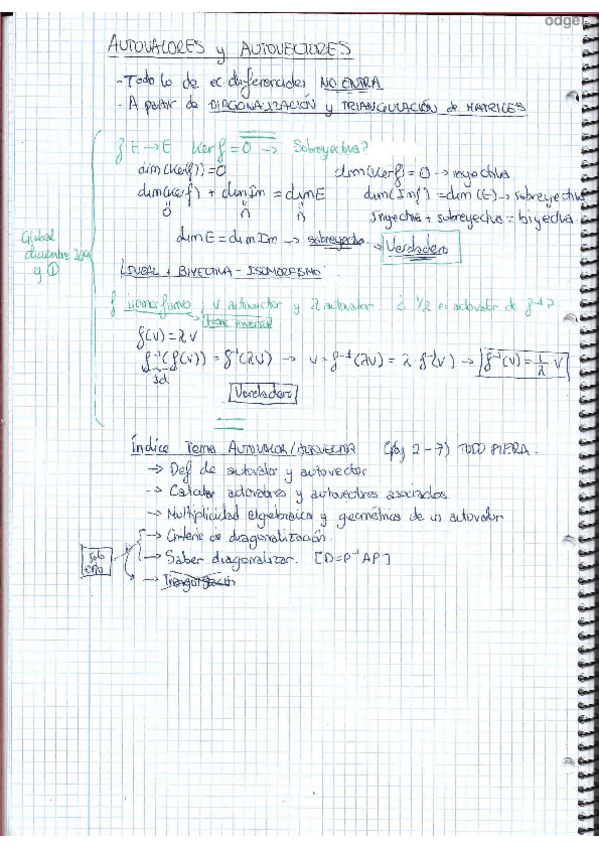 odge
AUTOVALORES y AUTOVECTORES
- Todo lo de ec diferenciales NO ENTRA
- A partir de DIAGONALIZACIÓN y TRIANGULACIÓN de MATRICES
Global diciembre
ej ①
f: E → E Ker f = 0 → Sobreyectiva?
dim(Ker f) = 0
dim(Ker f) = 0 → inyectiva
dim(Ker f) + dim Im = dim E
dim(Im f) = dim(E) → sobreyectiva
0 n n
Inyectiva + sobreyectiva = biyectiva
dim E = dim Im → sobreyectiva → Verdadero
LINEAL + BIYECTIVA = ISOMORFISMO
f isomorfismo, v autovector y λ autovalor ¿ 1/λ es autovalor de f⁻¹?
tiene inversa
f(v) = λv
f⁻¹(f(v)) = f⁻¹(λv) → v = f⁻¹(λv) = λ · f⁻¹(v) → f⁻¹(v) = 1/λ v
Id
Verdadero
Índice Tema AUTOVALOR/AUTOVECTOR (pág 2-7) TODO
→ Def de autovalor y autovector
→ Calcular autovalores y autovectores asociados
→ Multiplicidad algebraica y geométrica de un autovalor
→ Criterio de diagonalización
→ Saber diagonalizar. [D=P⁻¹AP]
Solo esto
→ Triangulización